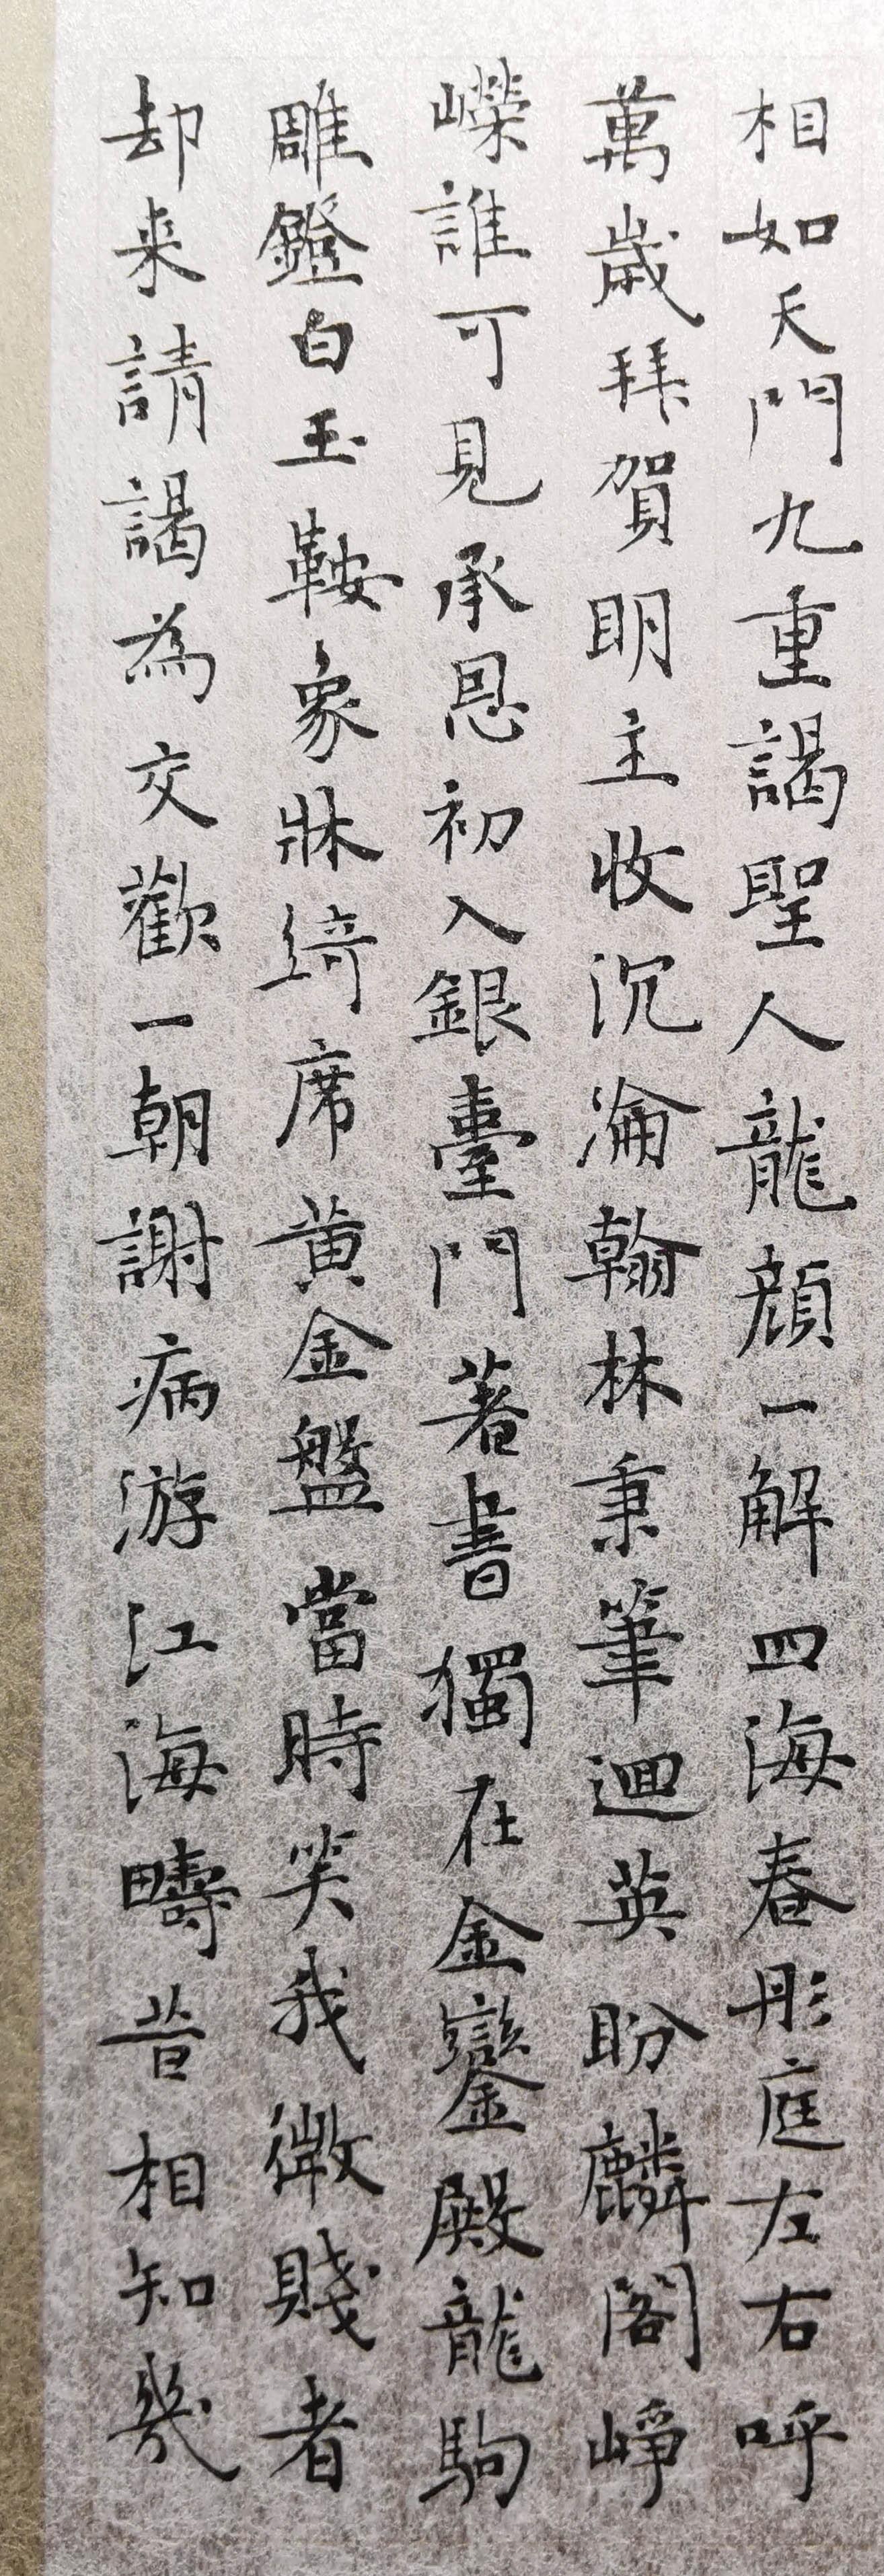 相如天門九重謁聖人龍顔一解四海春彤庭左右呼
萬歲拜賀明主收沉淪翰林秉筆迴英盼麟閣崢
嶸誰可見承恩初入銀臺門著書獨在金鑾殿龍駒
雕鐙白玉鞍象牀綺席黃金盤當時笑我微賤者
却来請謁為交歡一朝謝病游江海疇昔相知幾